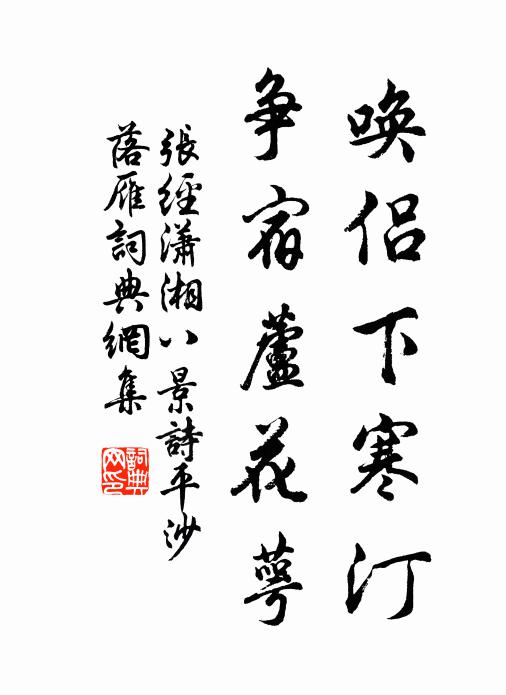 喚侶下寒汀
爭宿蘆花萼
張經瀟湘八景詩平沙
落雁詞典網集
詞典
网印